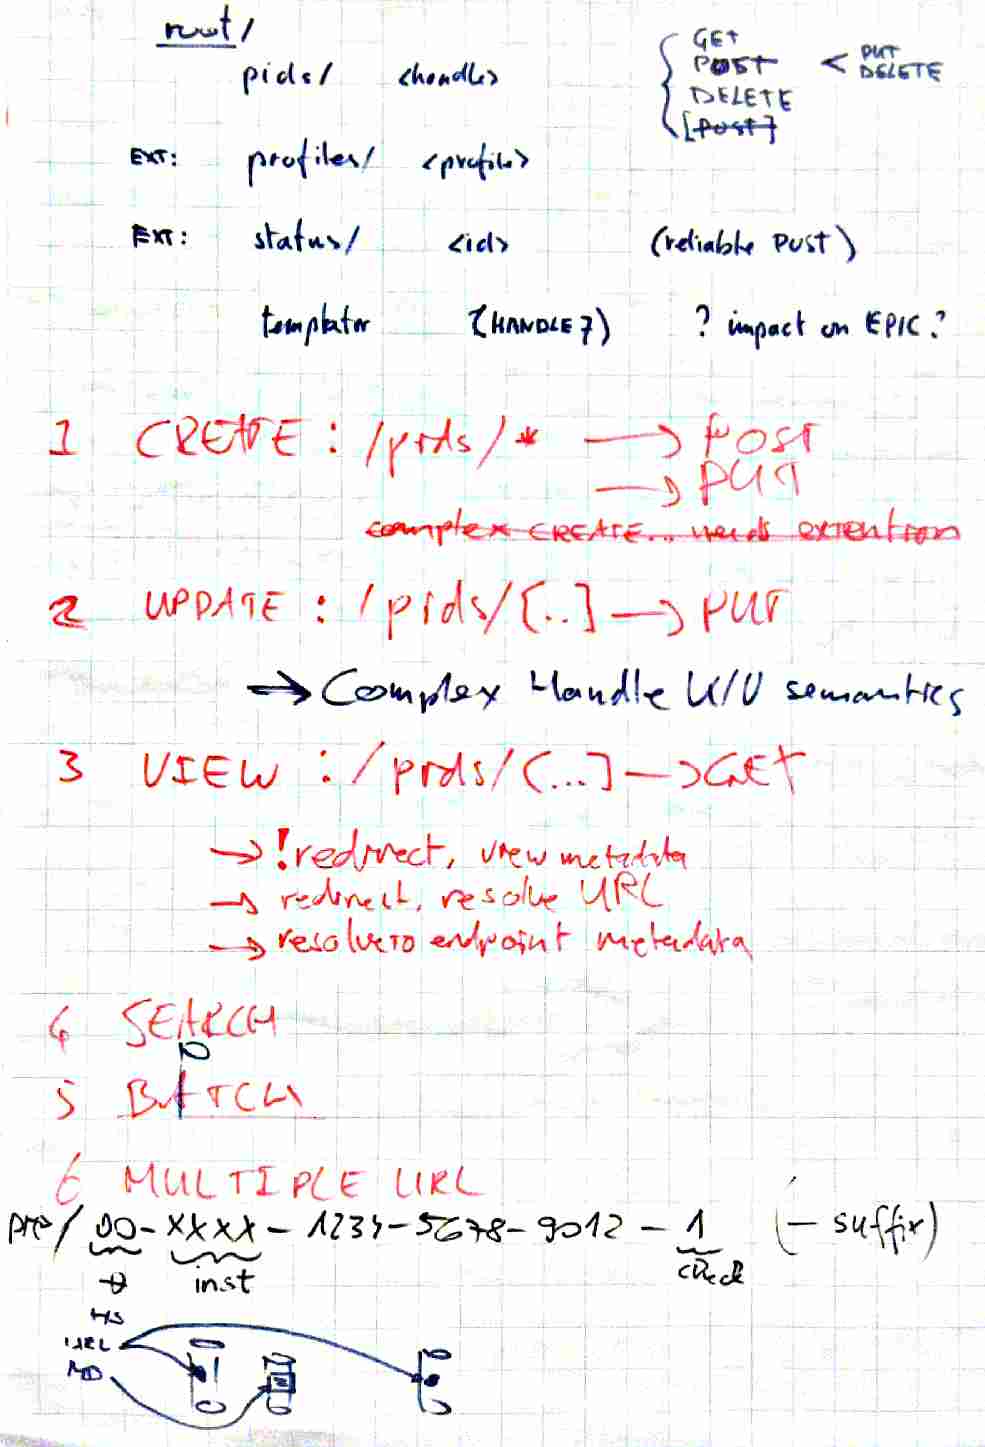 root/
pids/ <handle> { GET
POST < PUT
DELETE DELETE
[POST]
EXT: profiles/ <profile>
EXT: status/ <id> (reliable POST)
templator (HANDLE 7) ? impact on EPIC?
1 CREATE : /pids/* → POST
→ PUT
complex CREATE... needs extention
2 UPDATE : /pids/[..] → PUT
→ Complex Handle U/V semantics
3 VIEW : /pids/[...] → GET
→ !redirect, view metadata
→ redirect, resolve URL
→ resolve to endpoint metadata
4 SEARCH
5 BATCH
6 MULTIPLE URL
/ 00-XXXX-1234-5678-9012-1 (-suffix)
inst check
HS
URL
MD